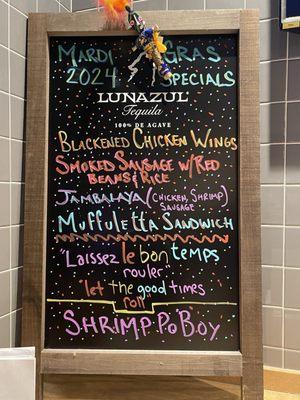 Mardi Gras
2024 Specials
LUNAZUL
Tequila
100% DE AGAVE
Blackened Chicken Wings
Smoked Sausage w/ Red
Beans & Rice
Jambalaya (Chicken, Shrimp)
Sausage
Muffuletta Sandwich
"Laissez le bon temps
rouler"
"let the good times
roll"
Shrimp Po'Boy